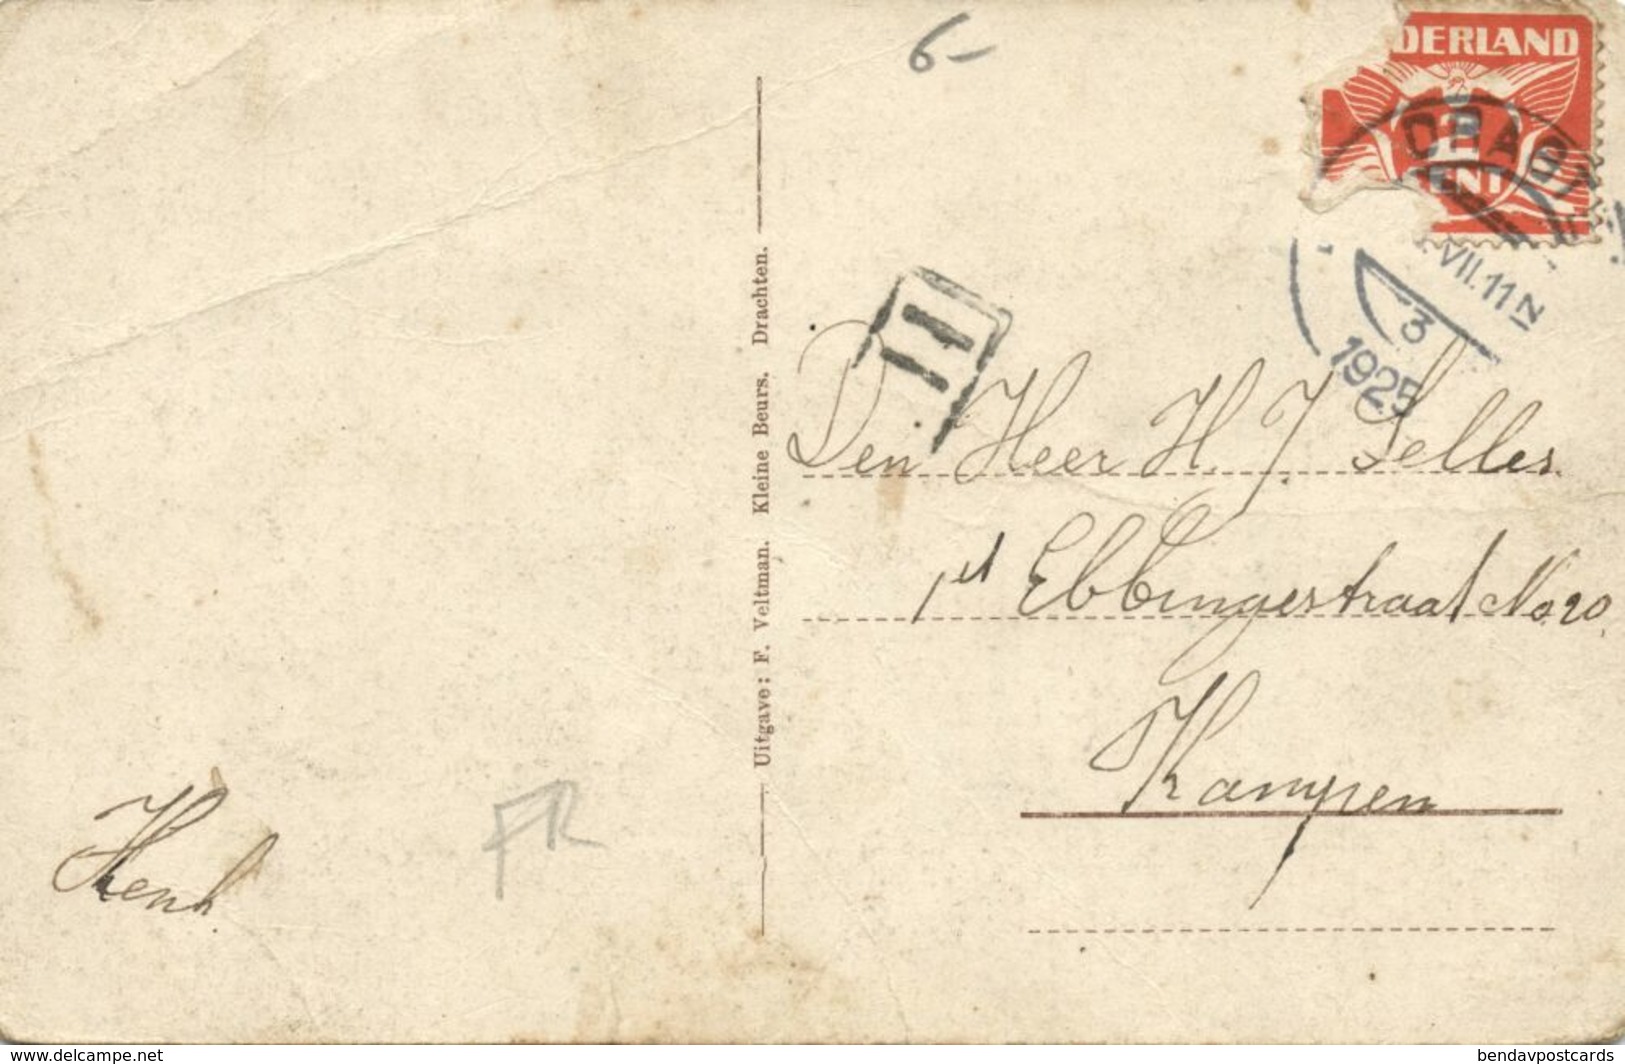 6-
DERLAND
2
ENT
DRACHT
VII.11 N
3
1925
H
Den Heer H. J. Selles.
1st Ebbingestraat No 20.
Kampen
Henk
FR
Uitgave: F. Veltman. Kleine Beurs. Drachten.
www.delcampe.net
bendavpostcards